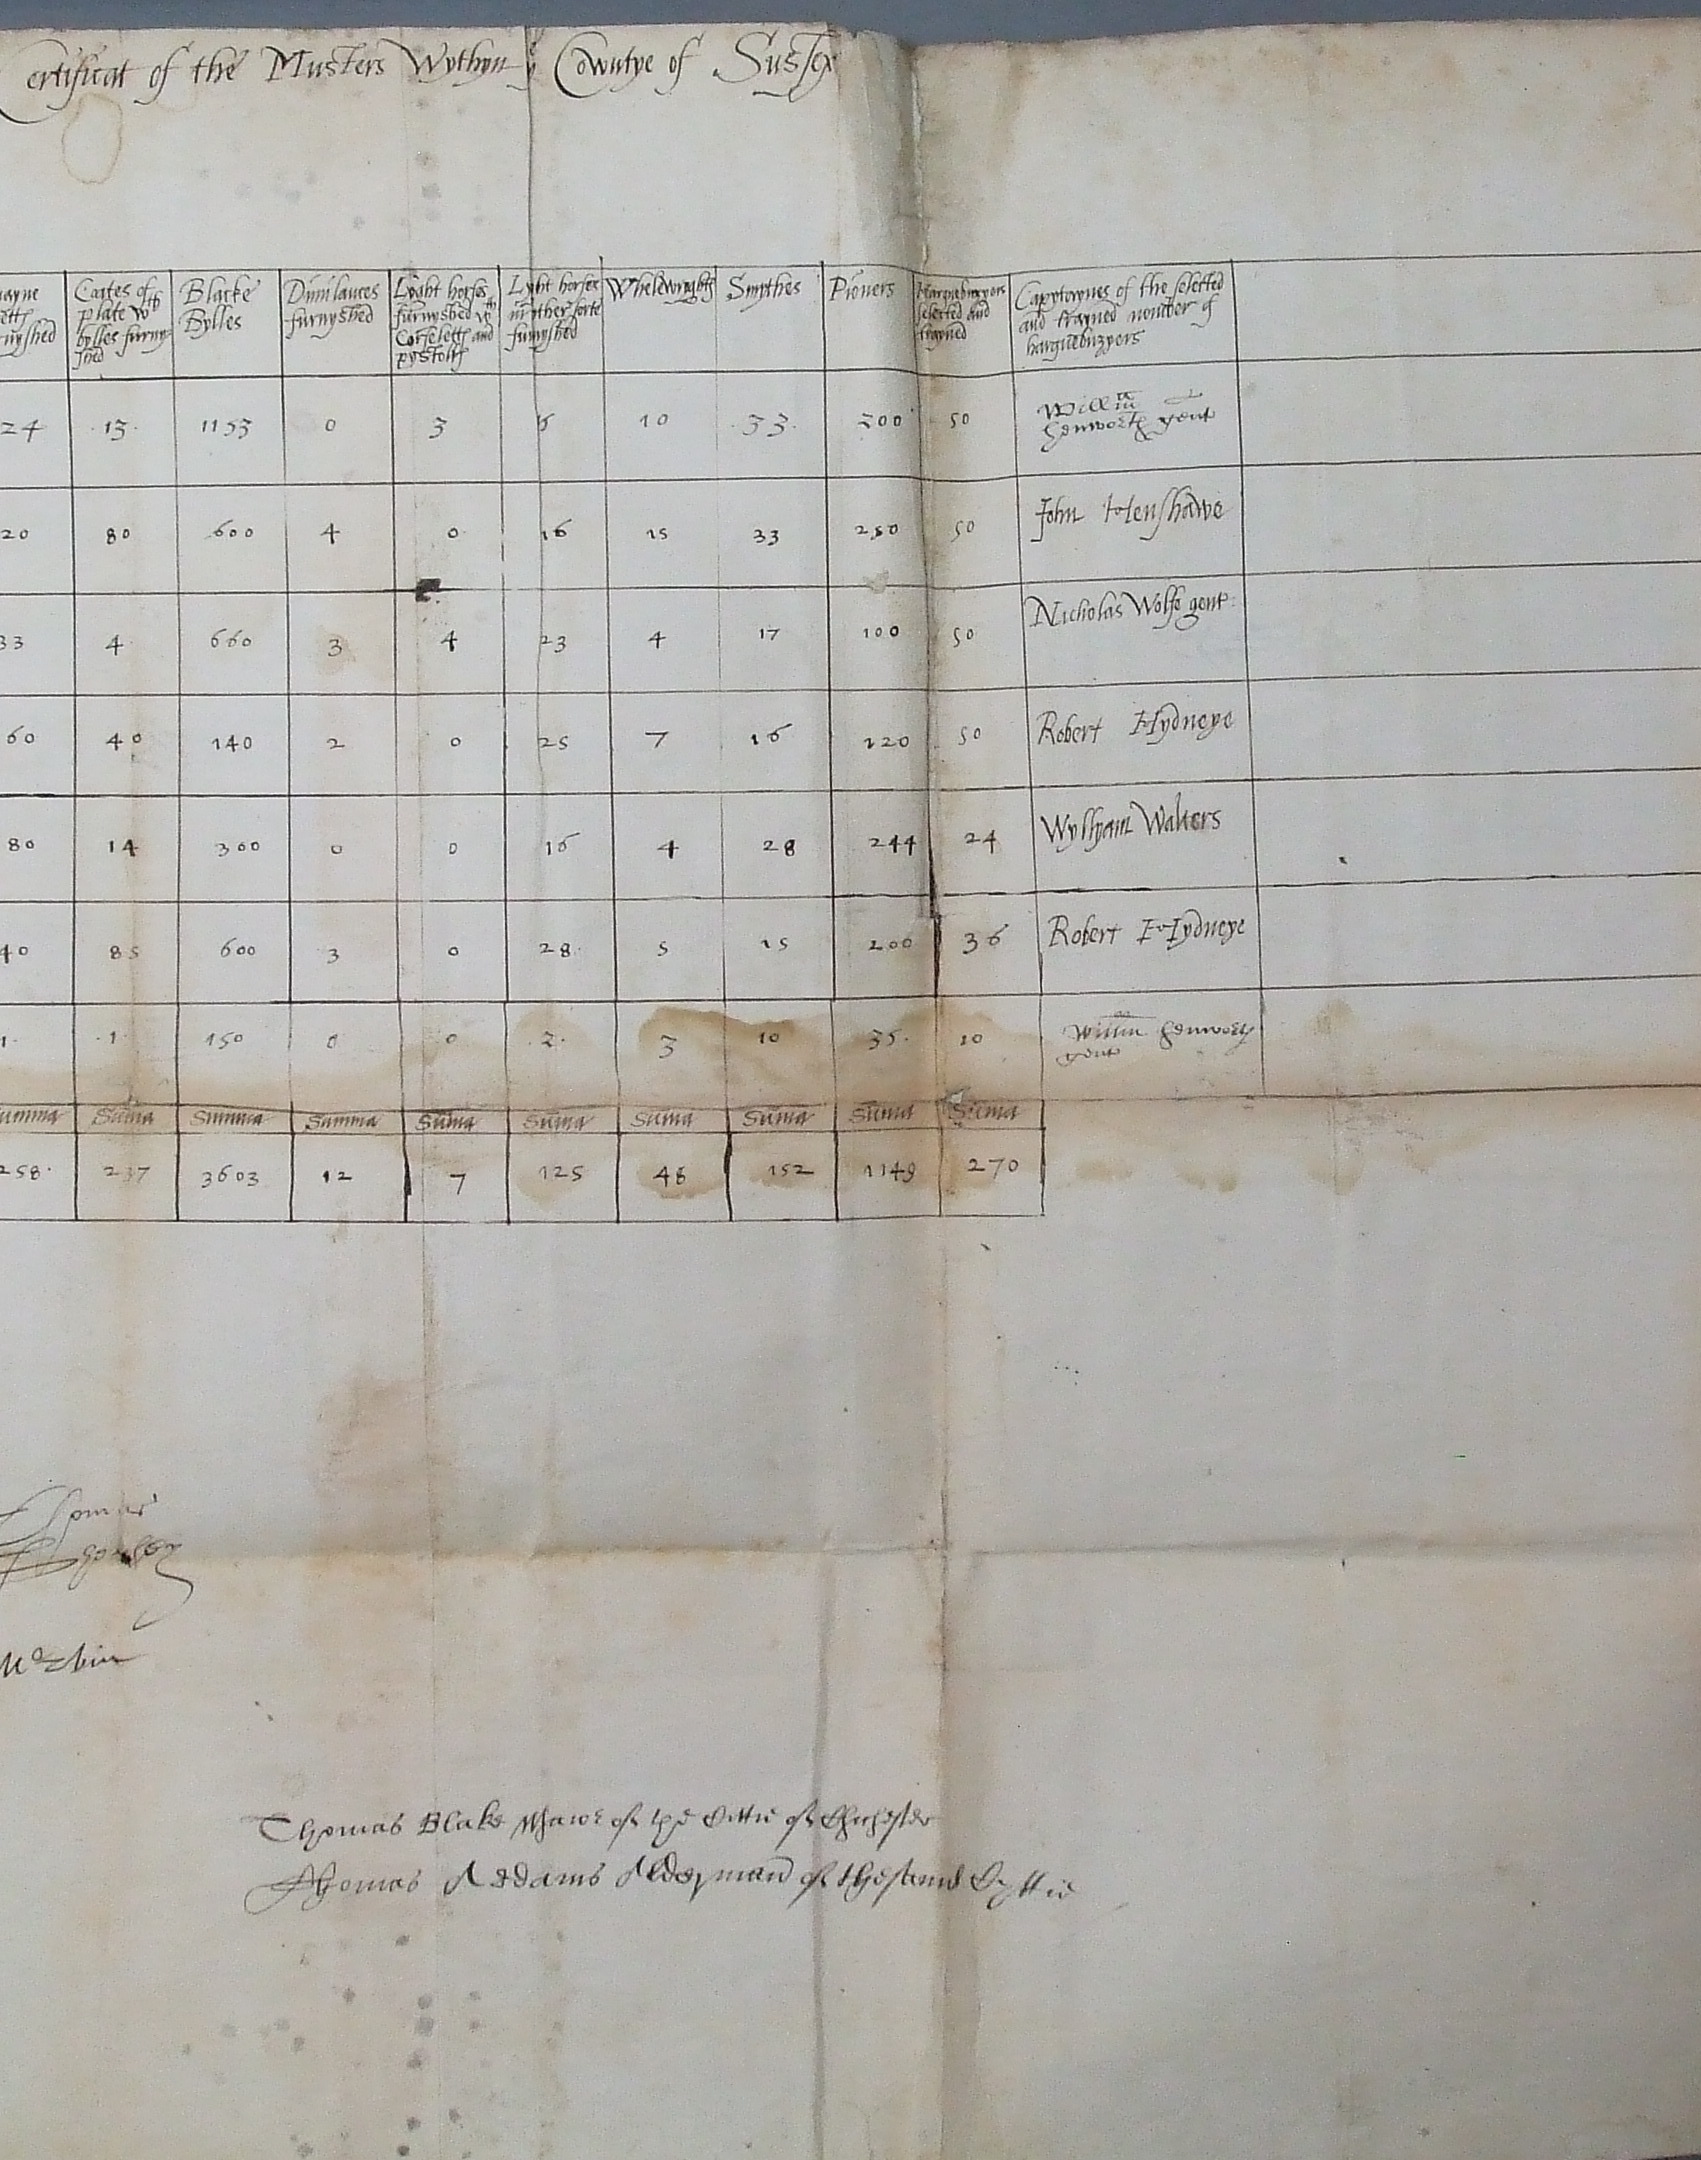 Certificat of the Musters Wythyn y Cowntye of Sussex
Coates of plate wth bylles furnyshed
Blacke Bylles
Dimilaunces furnyshed
Lyght horses furnyshed wth Corseletts and pystolls
Lyght horses in other sorte furnyshed
Whelewryghts
Smythes
Pioners
Harquebuzyers selected and trayned
Capytaynes of the selected and trayned nomber of harquebuzyers
24 13 1153 0 3 15 10 33 200 50
20 80 600 4 0 16 15 33 250 50 John Henshawe
33 4 660 3 4 23 4 17 100 50 Nicholas Wolfe gent
60 40 140 2 0 25 7 16 120 50 Robert Hydneye
80 14 300 0 0 16 4 28 244 24 Wyllyam Walters
40 85 600 3 0 28 5 15 200 36 Robert Hydneye
1 1 150 0 0 2 3 10 35 10
Summa Suma Summa Summa Suma Suma Suma Suma Suma Suma
258 237 3603 12 7 125 48 152 1149 270
Thomas
Thomas Blake Maior of the Cittie of Chichester
Thomas Addams Alderman of the same Cyttie